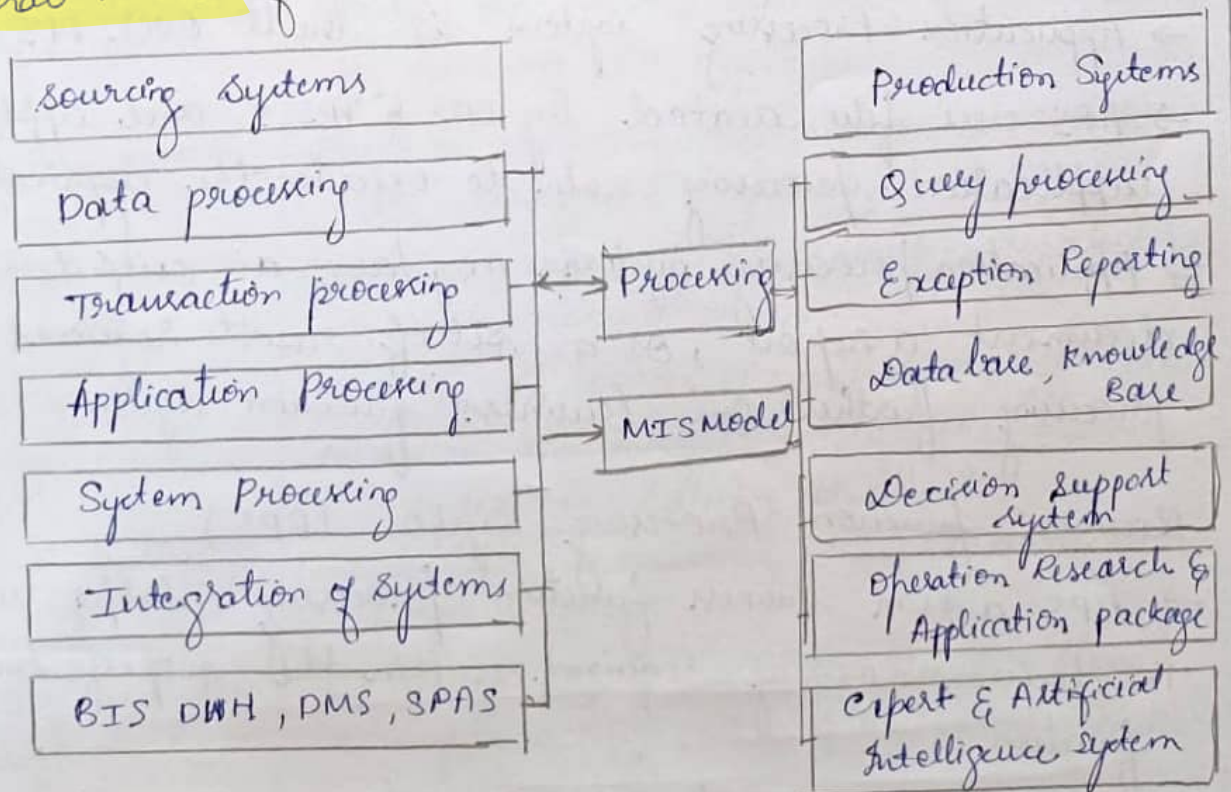 Sourcing Systems
Data processing
Transaction processing
Application Processing
System Processing
Integration of Systems
BIS DWH, DMS, SPAS
Processing
MIS Model
Production Systems
Query processing
Exception Reporting
Data base, Knowledge
Base
Decision Support
System
Operation Research &
Application package
Expert & Artificial
Intelligence System